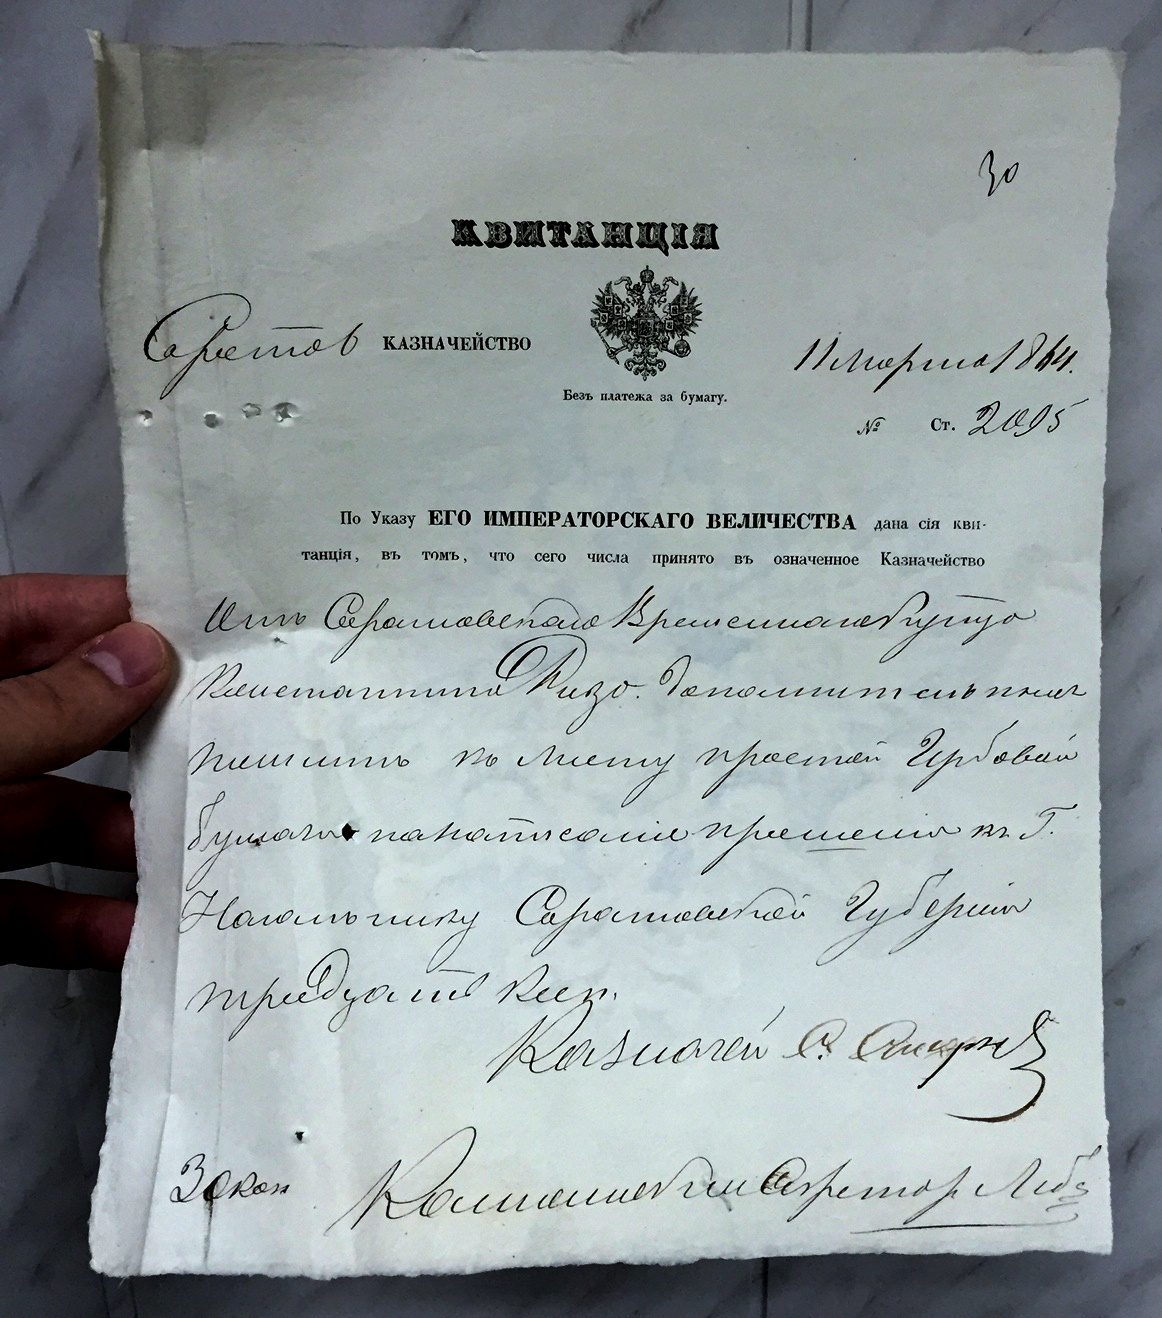 30
КВИТАНЦІЯ
Саратов КАЗНАЧЕЙСТВО
11 марта 1864.
Безъ платежа за бумагу.
№ Ст. 2095
По Указу ЕГО ИМПЕРАТОРСКАГО ВЕЛИЧЕСТВА дана сія кви-
танція, въ томъ, что сего числа принято въ означенное Казначейство
Отъ Саратовскаго Временнаго Купца
Константина Ризо. дополнительныхъ
пошлинъ къ листу простой Гербовой
бумаги написанія прошенія къ Г.
Начальнику Саратовской Губерніи
тридцать коп.
Казначей С.
30 коп
Секретарь